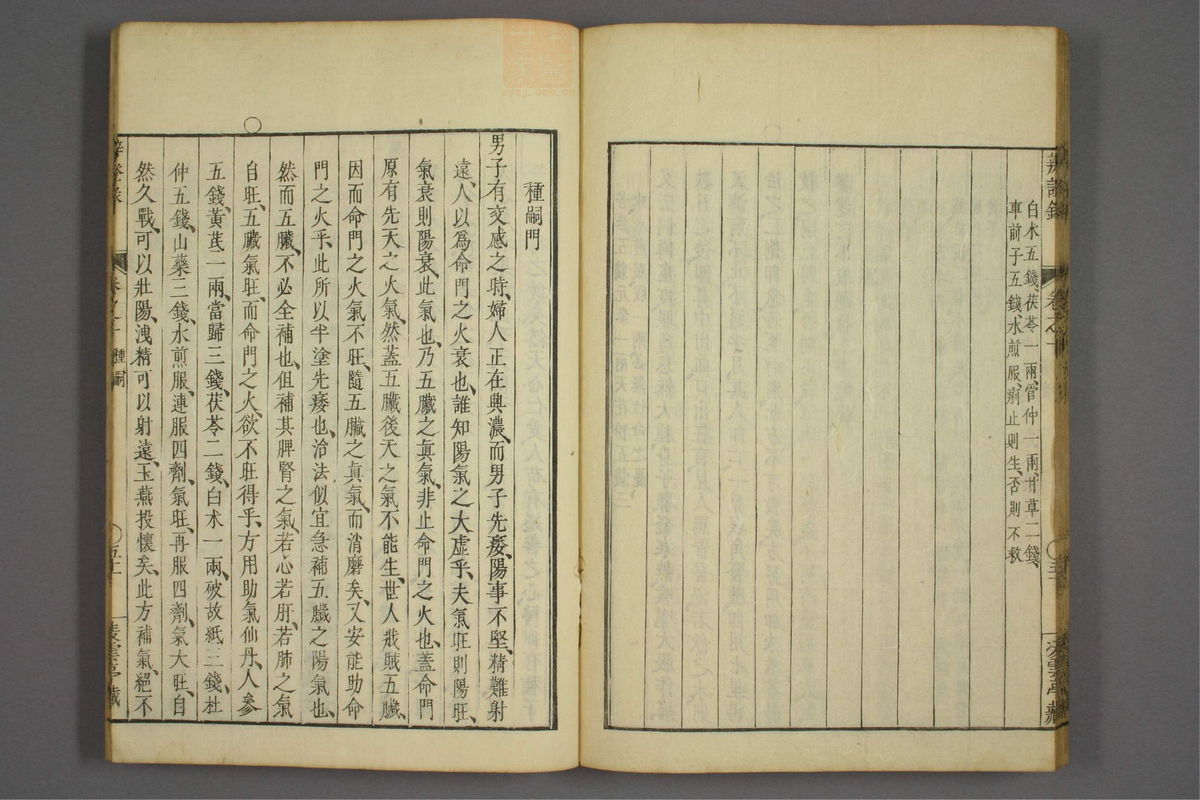 白朮五錢、茯苓一兩、管仲一兩、甘草二錢、
車前子五錢、水煎服、痢止則生、否則不救
種嗣門
男子有交感之時、婦人正在興濃、而男子先痿、陽事不堅、精難射
遠、人以爲命門之火衰也、誰知陽氣之大虛乎、夫氣旺則陽旺、
氣衰則陽衰、此氣也、乃五臟之眞氣、非止命門之火也、蓋命門
原有先天之火氣、然蓋五臟後天之氣不能生、世人戕賊五臟、
因而命門之火氣不旺、隨五臟之眞氣、而消磨矣、又安能助命
門之火乎、此所以半塗先痿也、治法似宜急補五臟之陽氣也、
然而五臟、不必全補也、但補其脾腎之氣、若心若肝、若肺之氣
自旺、五臟氣旺、而命門之火、欲不旺得乎、方用助氣仙丹、人參
五錢、黃芪一兩、當歸三錢、茯苓二錢、白术一兩、破故紙三錢、杜
仲五錢、山藥三錢、水煎服、連服四劑、氣旺、再服四劑、氣大旺、自
然久戰、可以壯陽、洩精可以射遠、玉燕投懷矣、此方補氣、絕不
卷之十 種嗣